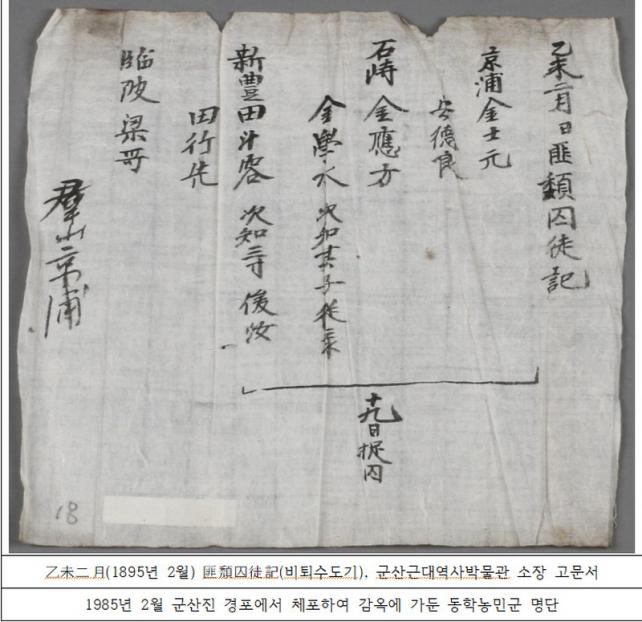 乙未二月日匪類囚徒記
京浦金士元
安德良
石崎金應方
金學水 次知其子
新豊田斗容 次知三寸 俊汝
田行先
臨陂梁哥
群山京浦
十九日捉囚
18
乙未二月(1895년 2월) 匪頹囚徒記(비퇴수도기), 군산근대역사박물관 소장 고문서
1985년 2월 군산진 경포에서 체포하여 감옥에 가둔 동학농민군 명단